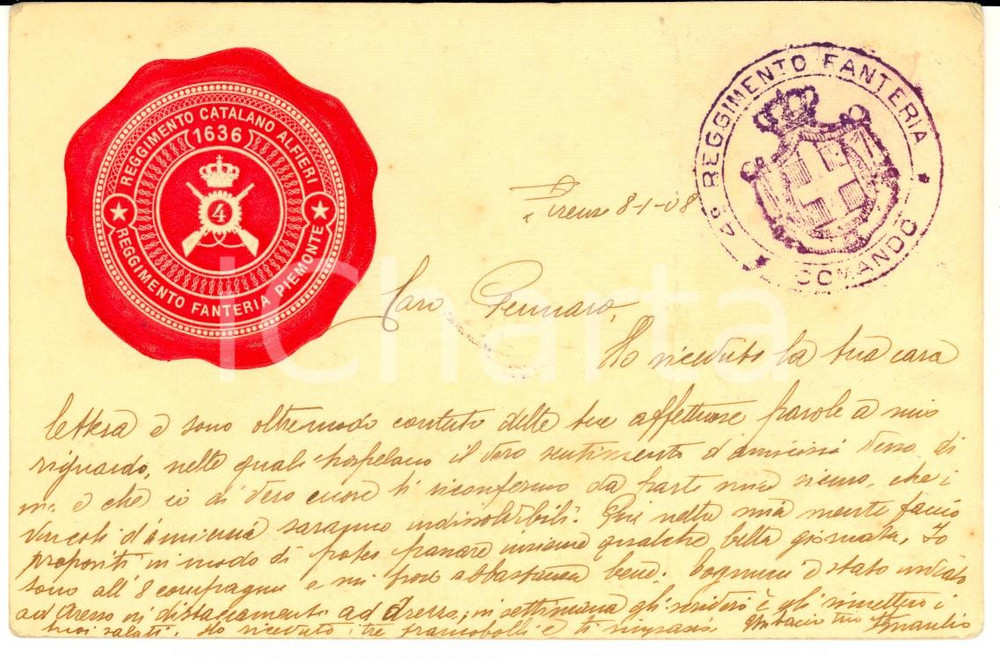 REGGIMENTO CATALANO ALFIERI
1636
4
REGGIMENTO FANTERIA PIEMONTE
4° REGGIMENTO FANTERIA
COMANDO
Firenze 8-1-08
Caro Gennaro,
Ho ricevuto la tua cara
lettera e sono oltremodo contento delle tue affettuose parole a mio
riguardo, nelle quali trapelano il vero sentimento d'amicizia verso di
me e che io di vero cuore ti riconfermo da parte mia sicuro, che i
vincoli d'amicizia saranno indissolubili. Già nella mia mente faccio
propositi in modo di poter passare insieme qualche bella giornata, Io
sono all' 8 compagnia e mi trovo abbastanza bene. è stato
ad in distaccamento ad in settimana gli scriverò e gli rimetterò i
tuoi saluti. Ho ricevuto i tre francobolli e ti ringrazio
iCharta